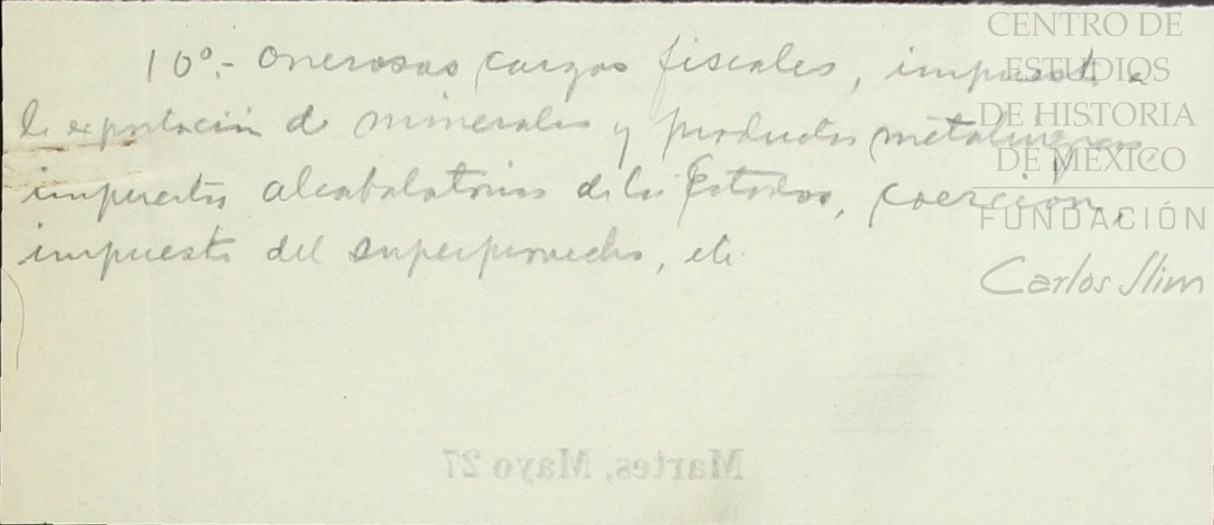 10º.- Onerosas cargas fiscales, impuesto a
la exportación de minerales y productos metalurgicos,
impuestos alcabalatorios de los Estados, coerción,
impuesto del superprovecho, etc.
Martes, Mayo 27
CENTRO DE
ESTUDIOS
DE HISTORIA
DE MÉXICO
FUNDACIÓN
Carlos Slim